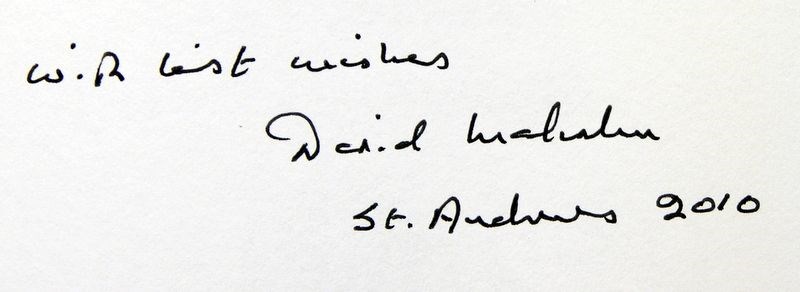 With best wishes
David Malcolm
St. Andrews 2010